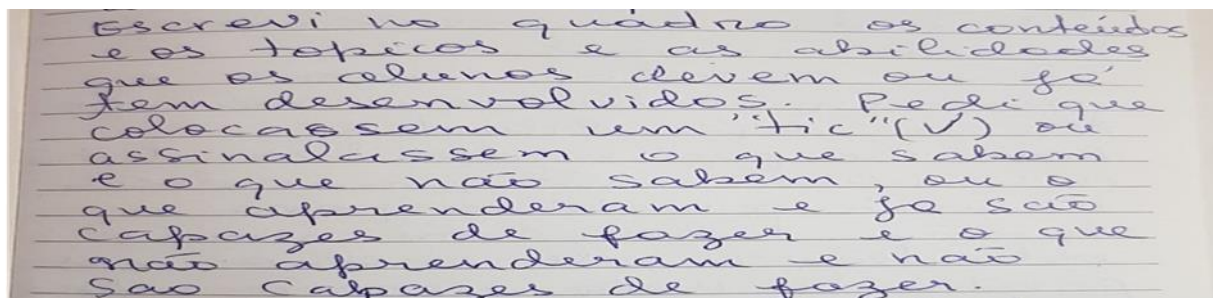 Escrevi no quadro os conteúdos
e os topicos e as abilidades
que os alunos devem ou já
tem desenvolvidos. Pedi que
colocassem um "tic"(V) ou
assinalassem o que sabem
e o que não sabem, ou o
que aprenderam e ja são
capazes de fazer e o que
não aprenderam e não
sao capazes de fazer.